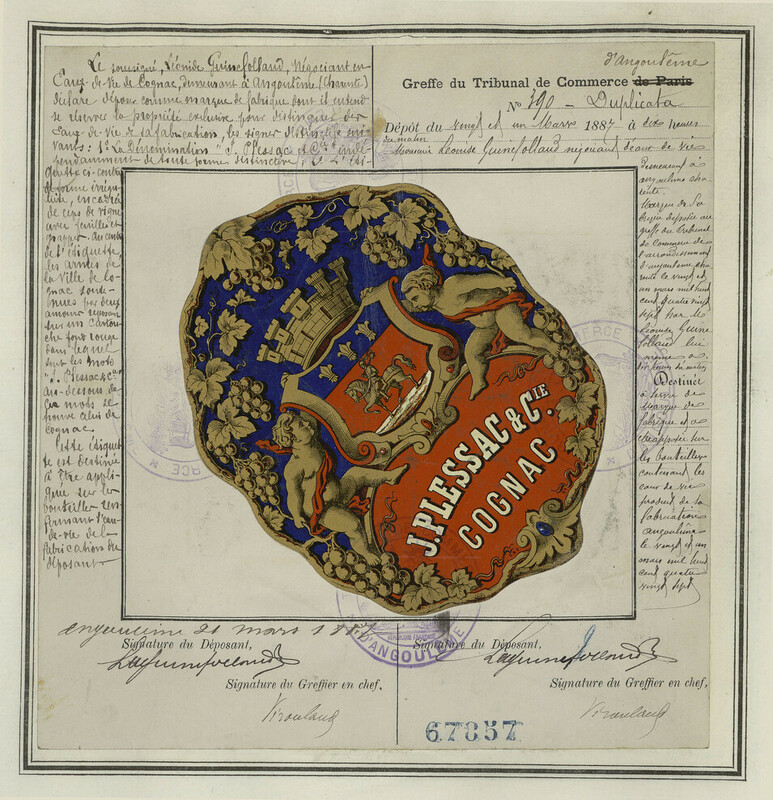 Le soussigné, Léonide Guinefolleaud, Négociant en
Eaux-de-Vie de Cognac, demeurant à Angoulême (Charente)
déclare déposer comme marque de fabrique dont il entend
se réserver la propriété exclusive pour distinguer des
Eaux de Vie de sa fabrication, les signes distinctifs sui-
vants: 1° La Dénomination: J. Plessac et Cie indé-
pendamment de toute forme distinctive; 2° L'éti-
quette ci-contre
de forme irrégu-
lière, encadrée
de ceps de vigne
avec feuilles et
grappes. au centre
de l'étiquette,
les armes de
la Ville de Co-
gnac soute-
nues par deux
amours reposant
sur un cartou-
che fond rouge
dans lequel
sont les mots
J. Plessac & Cie
Au-dessous de
ces mots se
trouve celui de
Cognac.
Cette étiquet-
te est destinée
à être appli-
quée sur les
bouteilles ren-
fermant l'eau-
de-vie de la
fabrication du
déposant.
d'angoulême
Greffe du Tribunal de Commerce de Paris
No 390 - Duplicata
Dépôt du vingt et un Mars 1887 à dix heures
du matin
Monsieur Léonide Guinefolleaud négociant d'eaux de vie
demeurant à
angoulême cha
rente.
Marque de Fa
brique déposée au
greffe du Tribunal
de Commerce de
l'arrondissement
d'angoulême cha
rente le vingt et
un mars mil huit
cent quatre vingt
sept par M.
Léonide Guine
folleaud lui
même à
dix heures du matin
Destinée
à servir de
Marque de
fabrique et à
être apposée sur
les bouteilles
contenant les
eaux de vie
produit de sa
fabrication
angoulême
le vingt et un
mars mil huit
cent quatre
vingt sept
J. PLESSAC & CIE.
COGNAC
angoulême 21 mars 1887
Signature du Déposant,
Signature du Déposant,
Signature du Greffier en chef,
Signature du Greffier en chef,
D'ANGOULÊME
67857